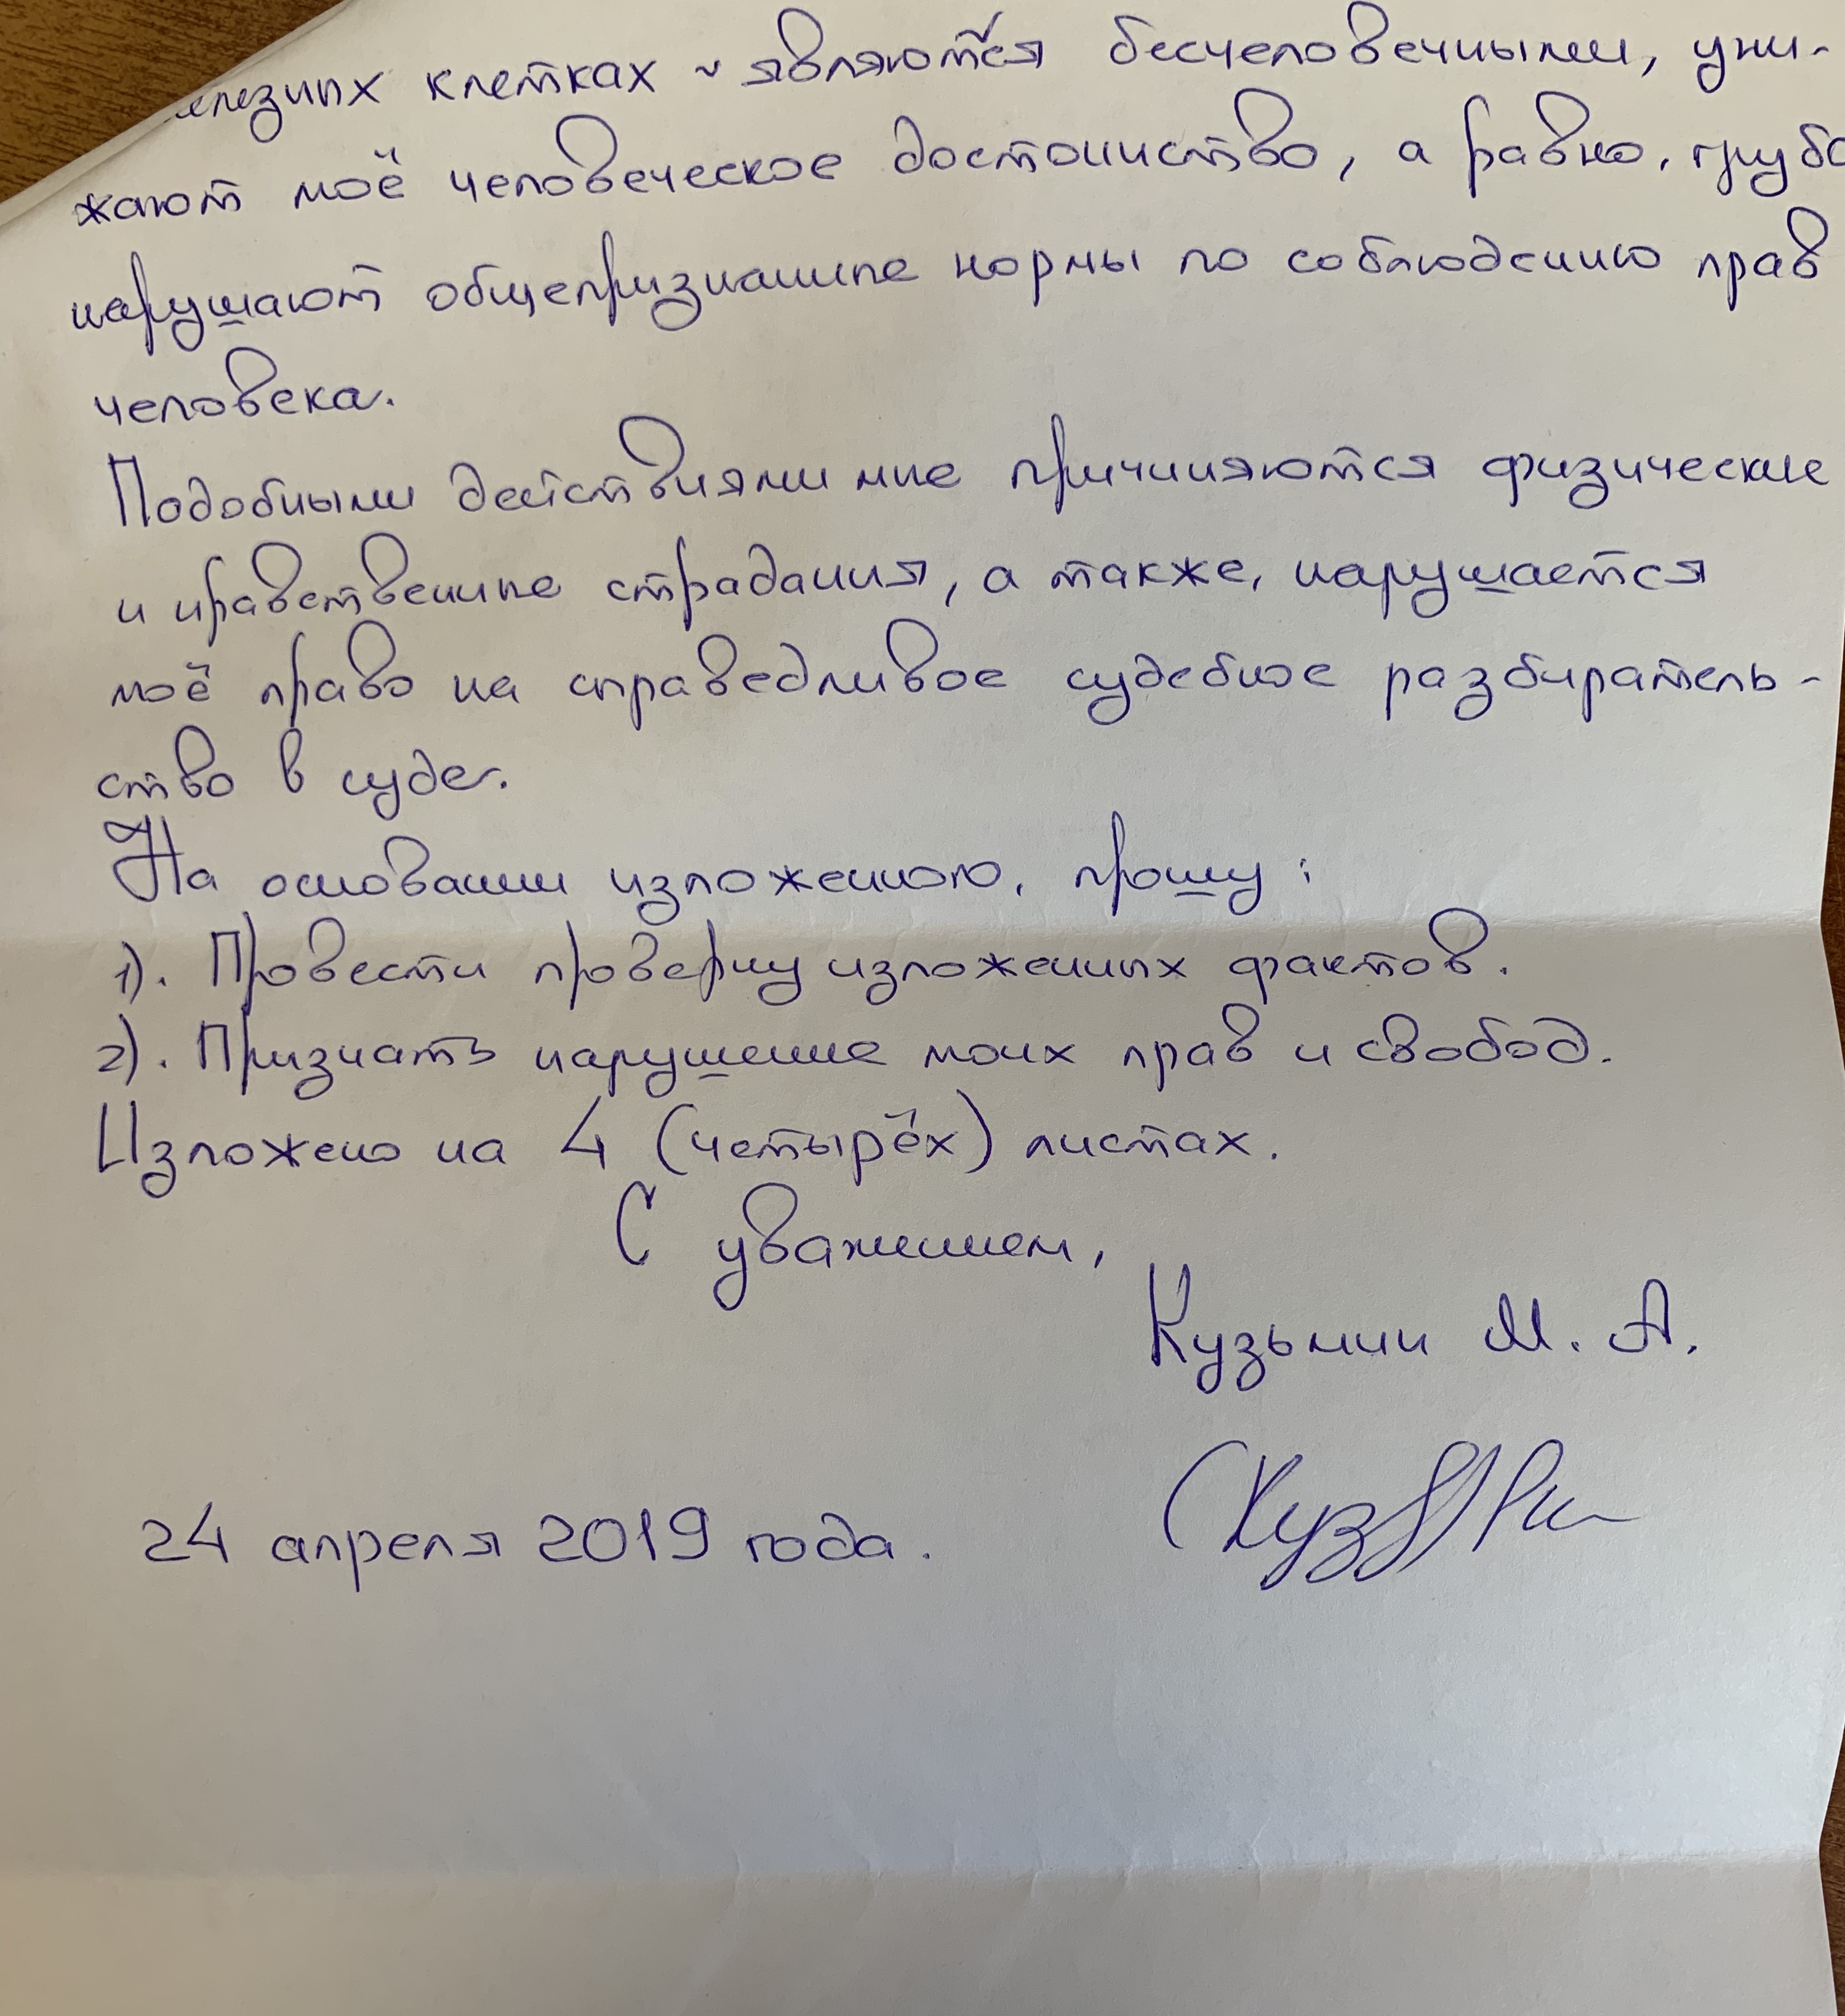 железных клетках - являются бесчеловечными, уни-
жают моё человеческое достоинство, а равно, грубо
нарушают общепризнанные нормы по соблюдению прав
человека.
Подобными действиями мне причиняются физические
и нравственные страдания, а также, нарушается
моё право на справедливое судебное разбиратель-
ство в суде.
На основании изложенного, прошу:
1). Провести проверку изложенных фактов.
2). Признать нарушение моих прав и свобод.
Изложено на 4 (четырёх) листах.
С уважением,
Кузьмин М. А.
24 апреля 2019 года.